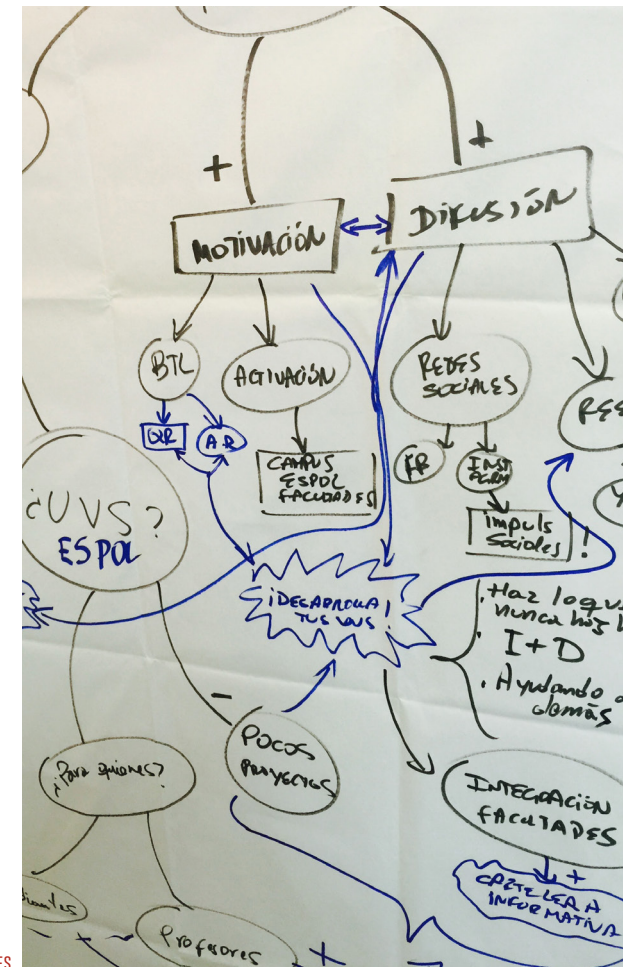 +
+
MOTIVACIÓN
DIFUSIÓN
BTL
ACTIVACIÓN
REDES
SOCIALES
QR
A.R
CAMPUS
ESPOL
FACULTADES
INST
impuls
Sociales
!
¿UVS?
ESPOL
¡DESARROLLA
TUS UVS!
. Haz
nunca
I+D
. Ayudando
demás
-
POCOS
PROYECTOS
¿Para quienes?
INTEGRACIÓN
FACULTADES
+
CARTELERA
INFORMATIVA
Profesores
+
-
ES